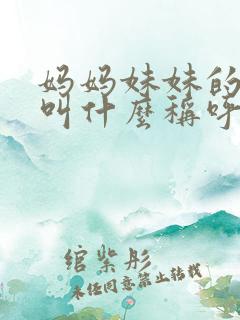 妈妈妹妹的
叫什麼稱呼
绾紫彤
未经同意禁止转载